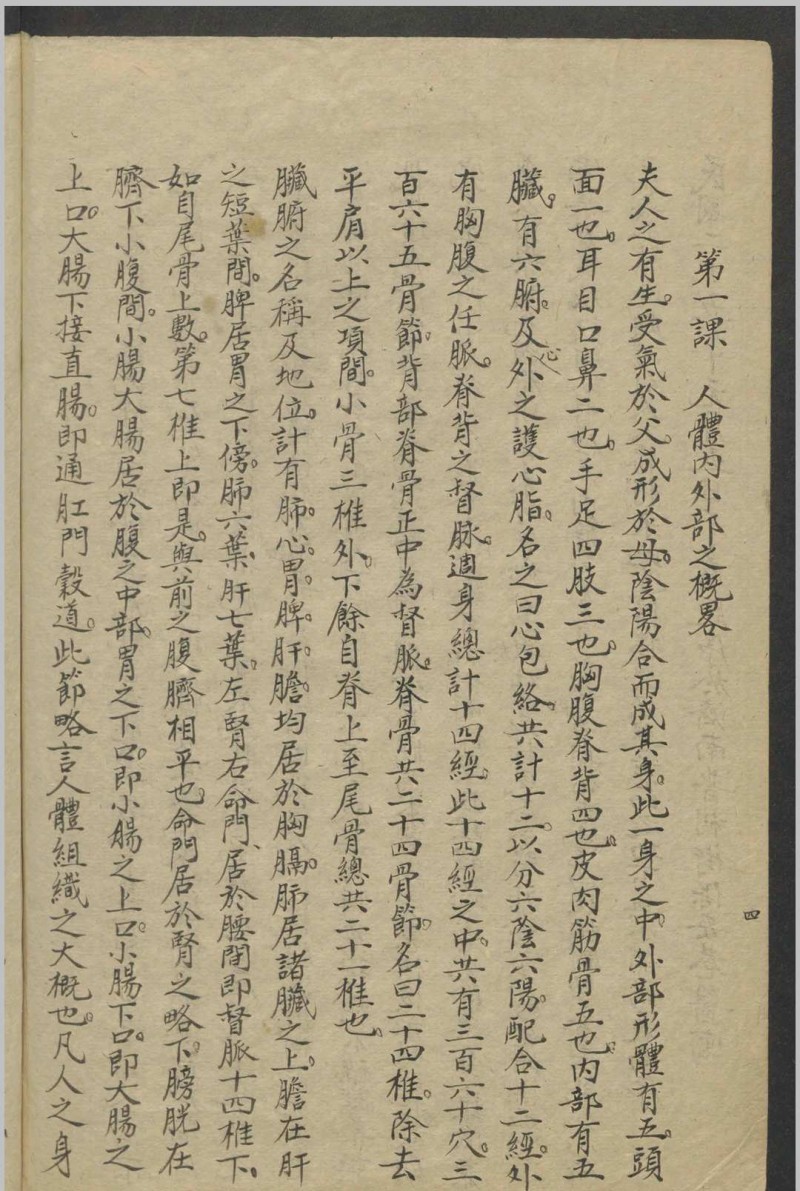 第一課　人體內外部之概畧
夫人之有生。受氣於父。成形於母。陰陽合而成其身。此一身之中。外部形體有五。頭
面一也。耳目口鼻二也。手足四肢三也。胸腹脊背四也。皮肉筋骨五也。內部有五
臟。有六腑。及心外之護心脂。名之曰心包絡。共計十二。以分六陰六陽。配合十二經。外
有胸腹之任脈。脊背之督脉。週身總計十四經。此十四經之中。共有三百六十穴。三
百六十五骨節。背部脊骨正中為督脈。脊骨共二十四骨節。名曰二十四椎。除去
平肩以上之項間。小骨三椎外。下餘自脊上至尾骨總共二十一椎也。
臟腑之名稱及地位。計有肺。心。胃。脾。肝。膽。均居於胸膈。肺居諸臟之上。膽在肝
之短葉間。脾居胃之下傍。肺六葉、肝七葉。左腎右命門、居於腰間即督脈十四椎下、
如自尾骨上數。第七椎上即是。與前之腹臍相平也。命門居於腎之略下。膀胱在
臍下小腹間。小腸大腸居於腹之中部。胃之下口。即小腸之上口。小腸下口。即大腸之
上口。大腸下接直腸。即通肛門穀道。此節略言人體組織之大概也。凡人之身
四